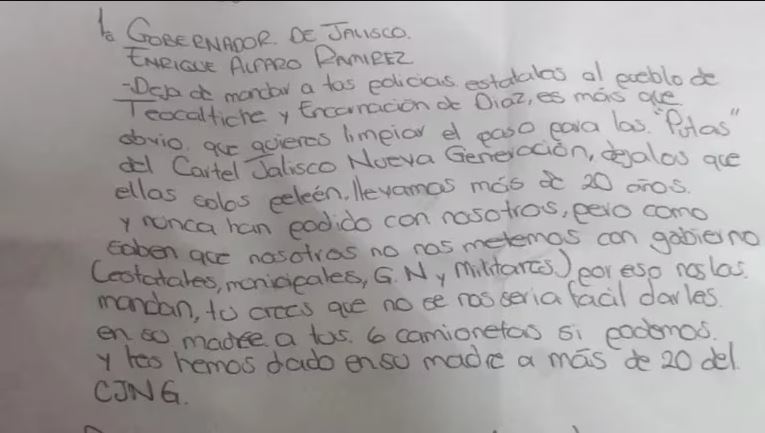 1. GOBERNADOR. DE JALISCO.
ENRIQUE ALFARO RAMIREZ
-Deja de mandar a tus policias. estatales al pueblo de
Teocaltiche y Encarnación de Diaz, es más que
obvio. que quieres limpiar el paso para las. "Putas"
del Cartel Jalisco Nueva Generación, dejalas que
ellas solas peleén, llevamos más de 20 años.
y nunca han podido con nosotros, pero como
saben que nosotros no nos metemos con gobierno
(estatales, municipales, G.N y Militares.) por eso nos los.
mandan, tu crees que no se nos seria facil darles.
en su madre a tus. 6 camionetas si podemos.
y les hemos dado en su madre a más de 20 del.
CJNG.